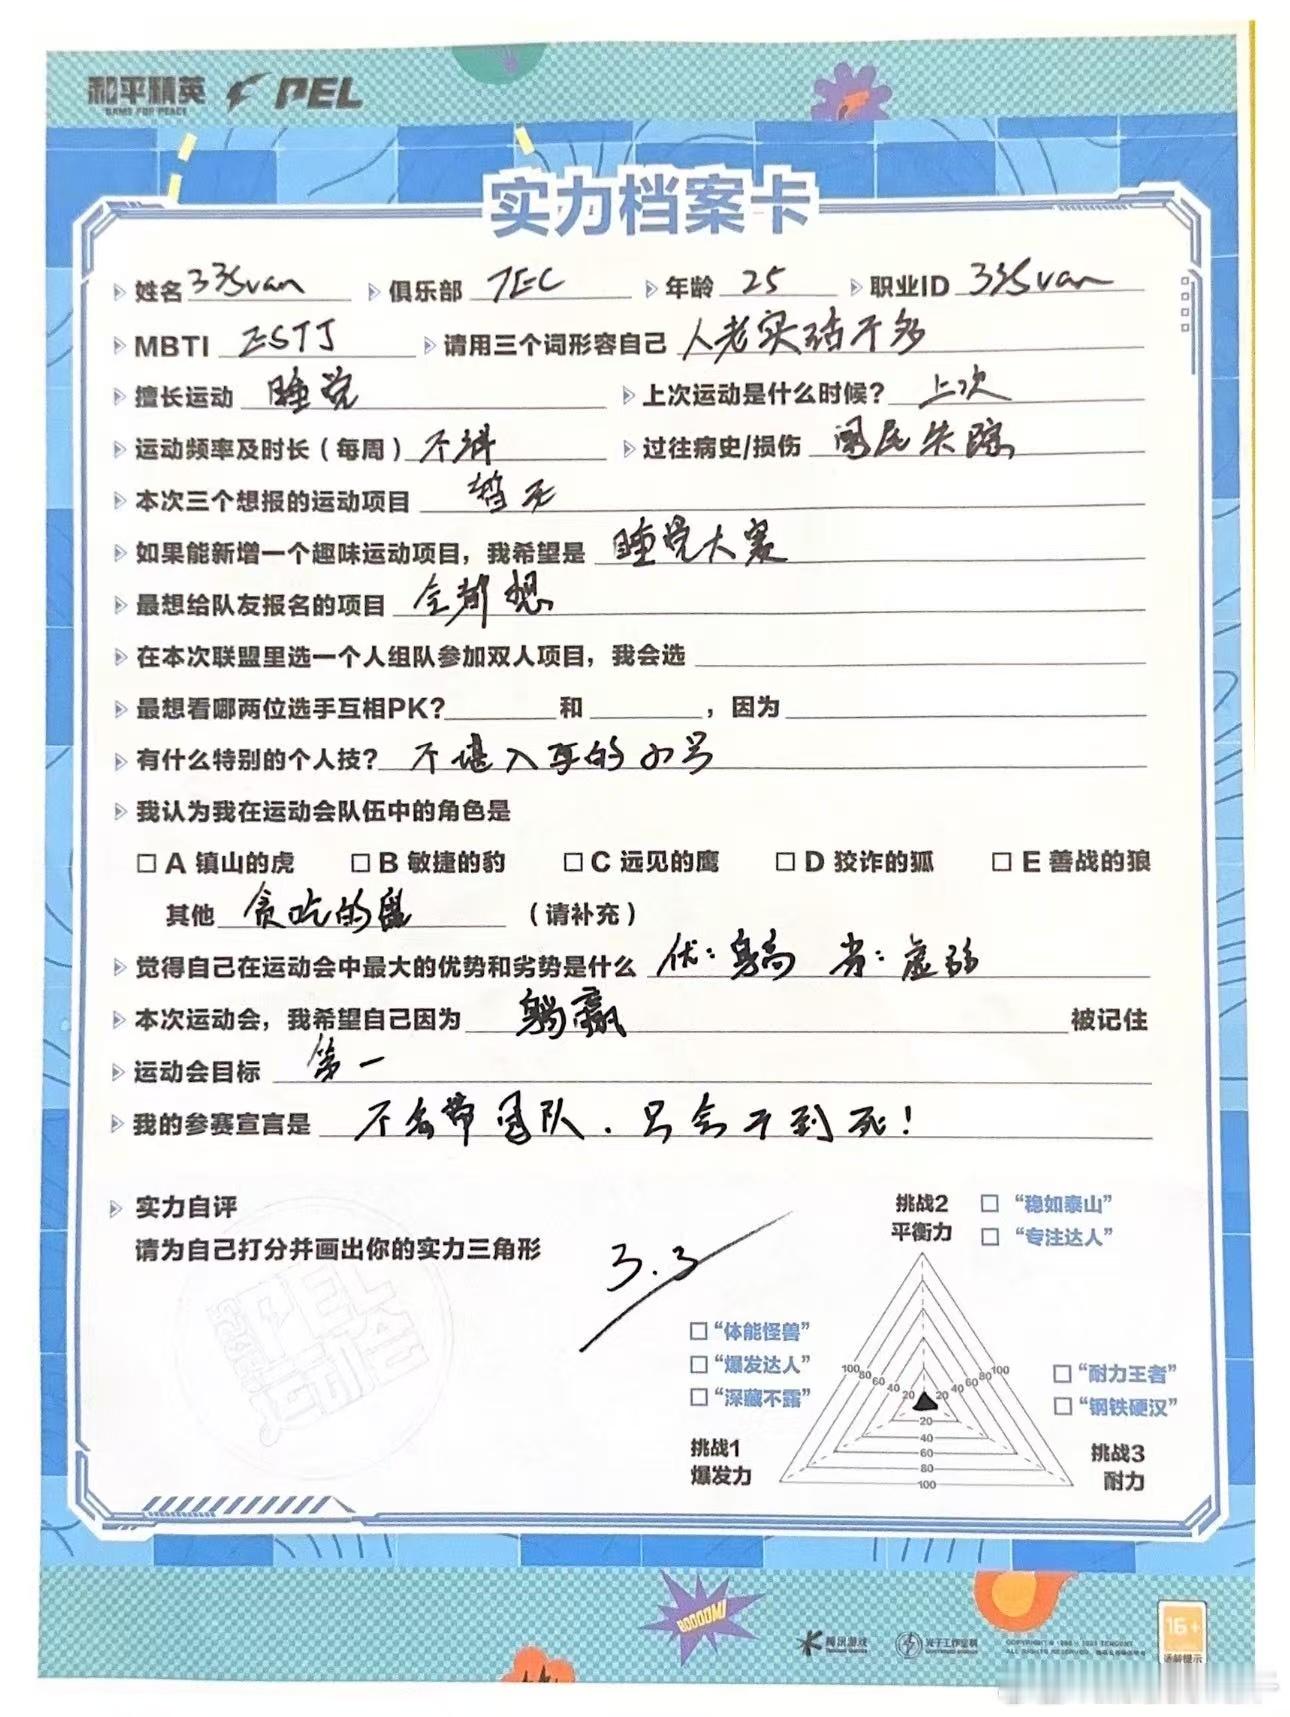 和平精英 PEL
GAME FOR PEACE
实力档案卡
姓名 33Svan 俱乐部 TEC 年龄 25 职业ID 33Svan
MBTI ESTJ 请用三个词形容自己 人老实话不多
擅长运动 睡觉 上次运动是什么时候? 上次
运动频率及时长(每周) 不科 过往病史/损伤 阑尾失踪
本次三个想报的运动项目 暂无
如果能新增一个趣味运动项目,我希望是 睡觉大赛
最想给队友报名的项目 全都想
在本次联盟里选一个人组队参加双人项目,我会选
最想看哪两位选手互相PK? 和 ,因为
有什么特别的个人技? 不堪入耳的小号
我认为我在运动会队伍中的角色是
□ A 镇山的虎 □ B 敏捷的豹 □ C 远见的鹰 □ D 狡诈的狐 □ E 善战的狼
其他 贪吃的 (请补充)
觉得自己在运动会中最大的优势和劣势是什么 优: 躺 劣: 虚弱
本次运动会,我希望自己因为 躺赢 被记住
运动会目标 第一
我的参赛宣言是 不会带团队,只会干到死!
实力自评
请为自己打分并画出你的实力三角形
3.3
挑战2
平衡力
□ “稳如泰山”
□ “专注达人”
□ “体能怪兽”
□ “爆发达人”
□ “深藏不露”
100 80 60 40 20 20 40 60 80 100
20
40
60
80
100
□ “耐力王者”
□ “钢铁硬汉”
挑战1
爆发力
挑战3
耐力
BOOOOM!
腾讯游戏
光子工作室群
16+
适龄提示